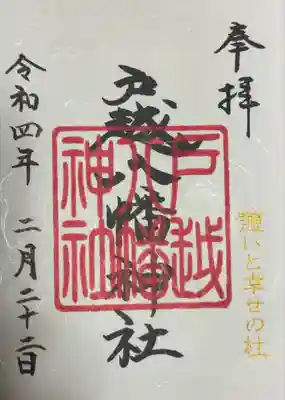 奉拝
戸越八幡神社
戸越
八幡
神社
憩いと幸せの社
令和四年 二月二十二日